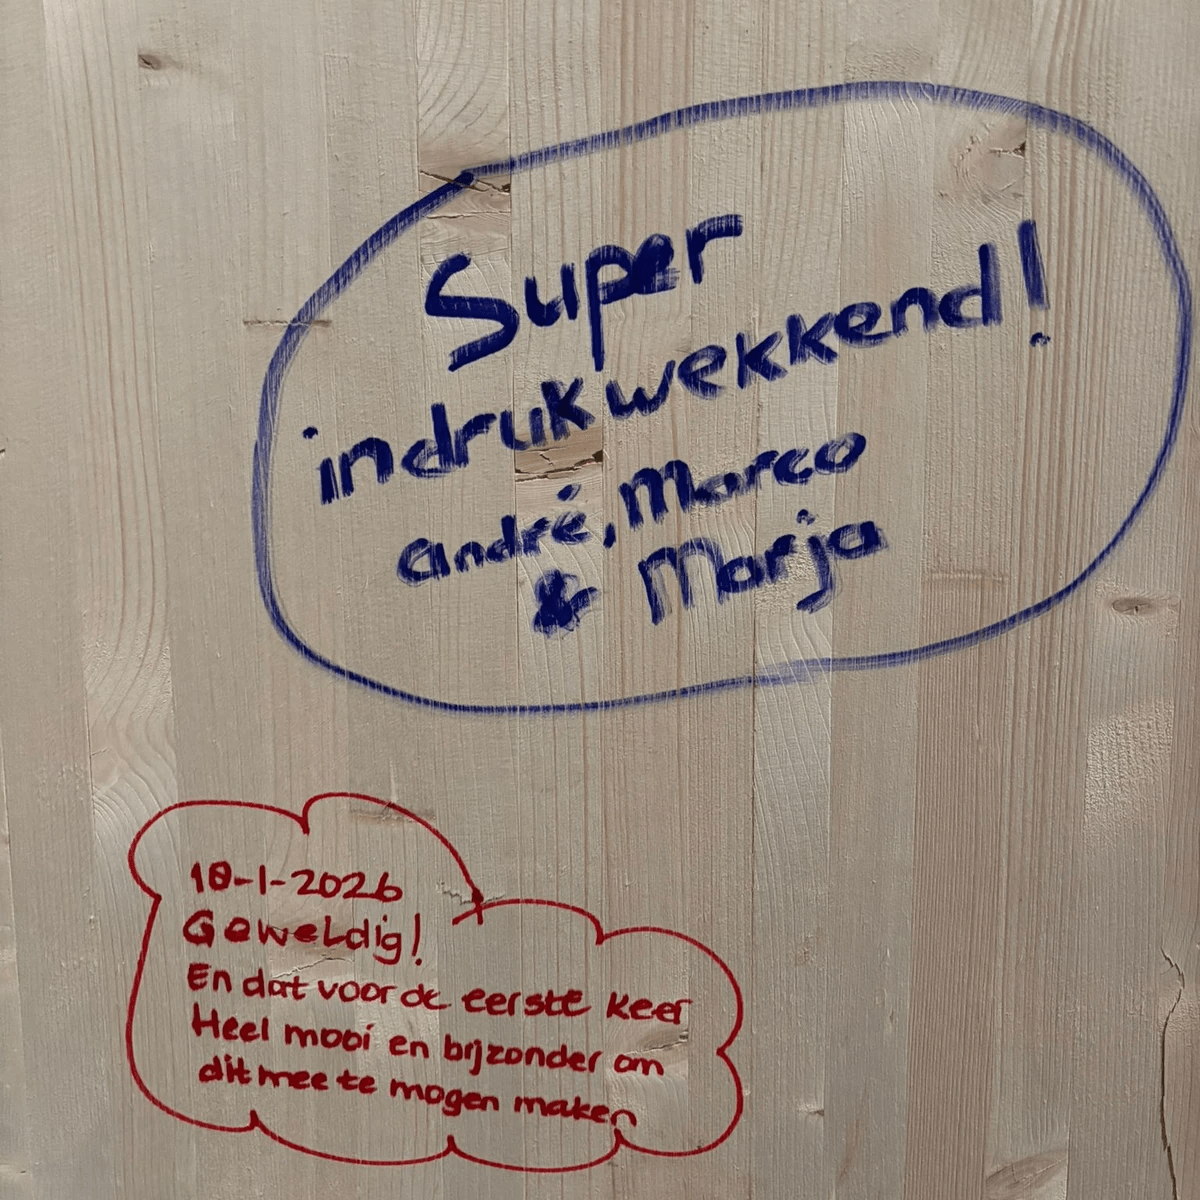 Super
indrukwekkend!
André, Marco
& Marja
10-1-2026
Geweldig!
En dat voor de eerste keer
Heel mooi en bijzonder om
dit mee te mogen maken